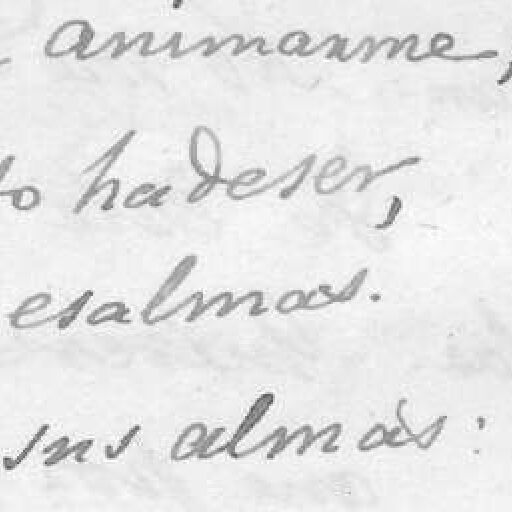 animarme,
to ha de ser,
esalmas.
sus almas: